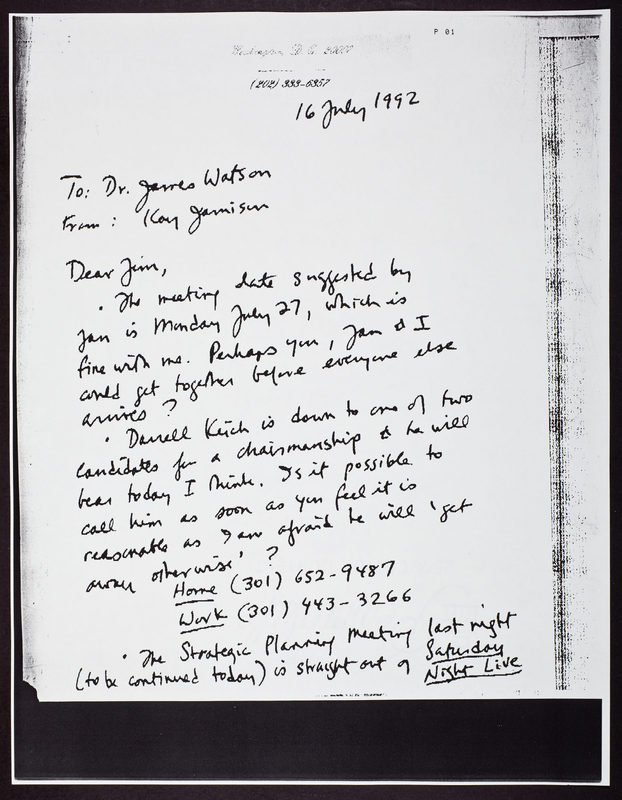 P 01
Washington, D. C. 20007
(202) 333-6357
16 July 1992
To: Dr. James Watson
From: Kay Jamison
Dear Jim,
• The meeting date suggested by
Jan is Monday July 27, which is
fine with me. Perhaps you, Jan & I
could get together before everyone else
arrives?
• Darrell Keich is down to one of two
candidates for a chairmanship & he will
hear today I think. Is it possible to
call him as soon as you feel it is
reasonable as I am afraid he will 'get
away otherwise'?
Home (301) 652-9487
Work (301) 443-3266
• The Strategic Planning Meeting last night
(to be continued today) is straight out of Saturday
Night Live